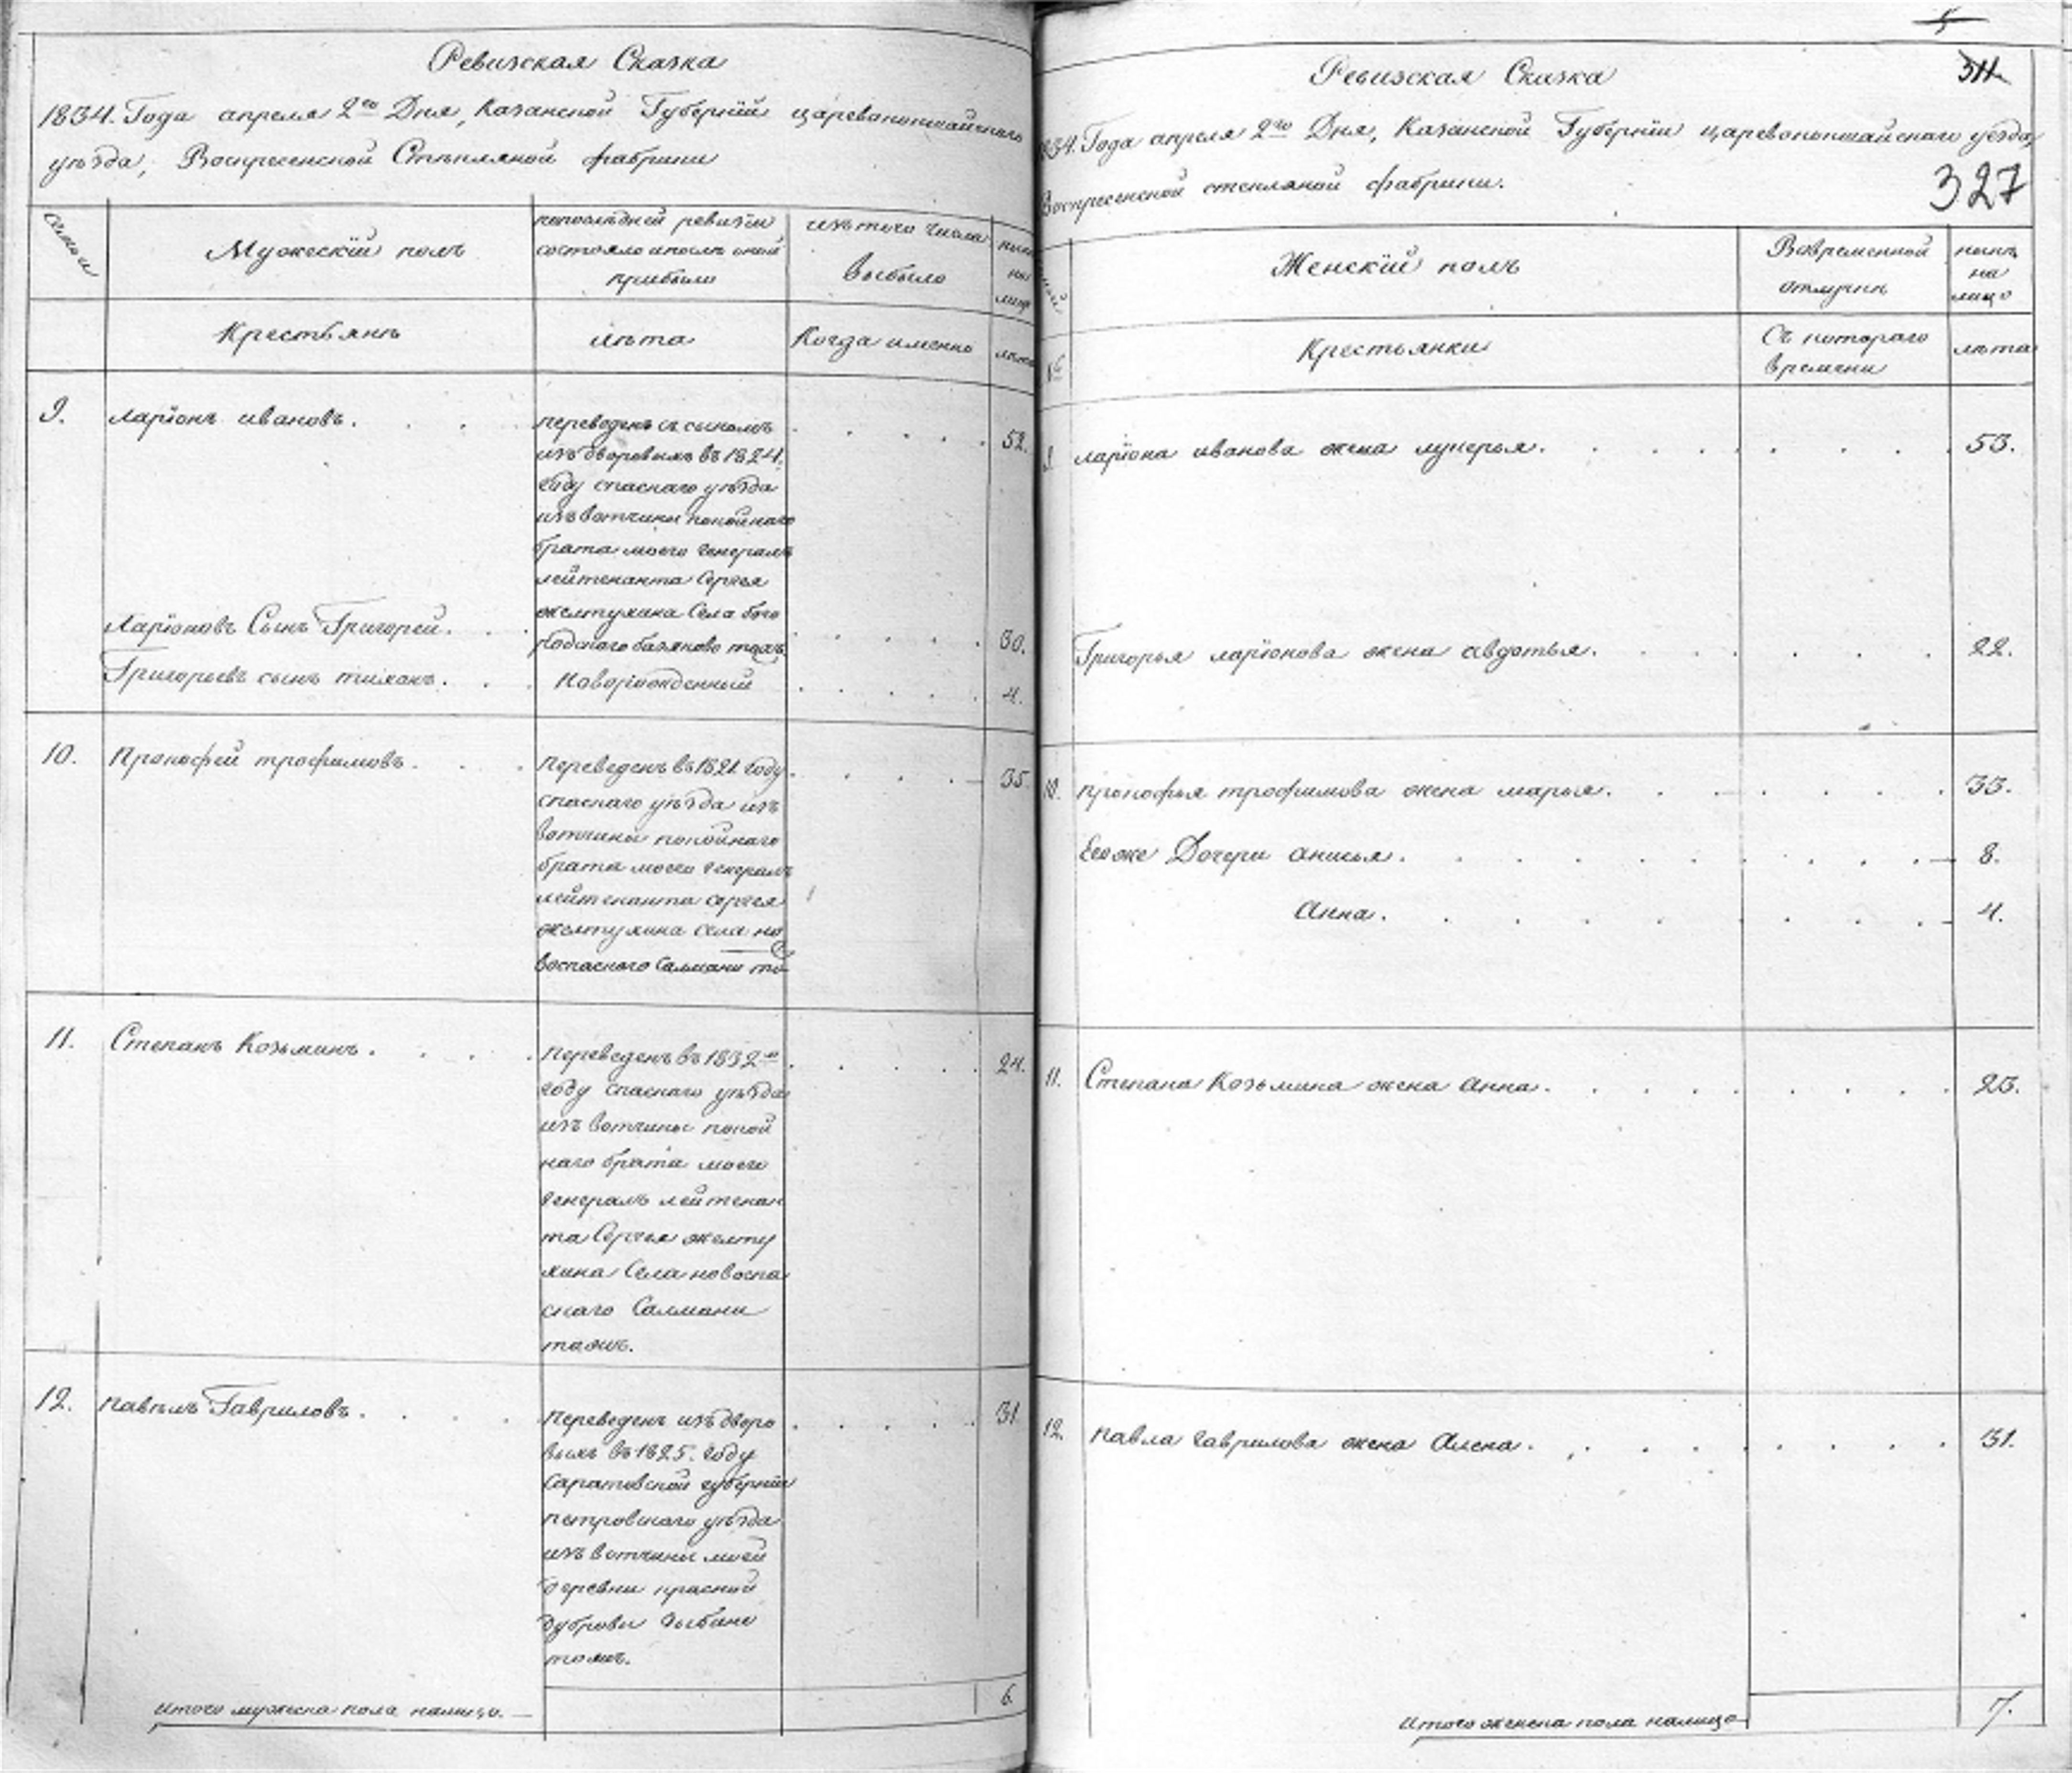 Ревизская Сказка
1834. Года апреля 2го Дня, Казанской Губернїи царевококшайскаго
уѣзда, Воскресенской Стекляной фабрики
Мужескїй полъ
попослѣдней ревизїи
состояло ипослѣ оной
прибыло
изътого числа
Выбыло
Крестьянъ
лѣта
Когда именно
лѣта
9.
Ларїонъ ивановъ.
переведенъ съ сыномъ
изъ дворовыхъ въ 1824.
году спаскаго уѣзда
изъ вотчины покойнаго
брата моего генералъ
лейтенанта Сергея
желтухина Села бого
родскаго
52.
Ларїоновъ Сынъ Григорей.
30.
Григорьевъ сынъ тихонъ.
Новорожденный
4.
10.
Прокофей трофимовъ.
переведенъ въ 1821. году
спаскаго уѣзда изъ
вотчины покойнаго
брата моего генералъ
лейтенанта сергея
желтухина села но
воспаскаго Салмани то
35.
11.
Степанъ Козьминъ.
переведенъ въ 1832го
году спаскаго уѣзда
изъ вотчины покой
наго брата моего
генералъ лейтенан
та Сергея желту
хина Села новоспа
скаго Салмани
тожъ.
24.
12.
павелъ Гавриловъ.
переведенъ изъ дворо
выхъ въ 1825. году
Саратовской губернїи
петровскаго уѣзда
изъ вотчины моей
деревни красной
дубровы
тожъ.
31.
итого мужеска пола налицо.
6.
5
311
Ревизская Сказка
1834. Года апреля 2го Дня, Казанской Губернїи царевококшайскаго уѣзда,
Воскресенской стекляной фабрики.
327
Женскїй полъ
Вовременной
отлучки
нынѣ
на
лицо
№
Крестьянки
Съ котораго
времени
лѣта
9.
ларїона иванова жена лукерья.
53.
Григорья ларїонова жена авдотья.
22.
10.
прокофья трофимова жена марья.
33.
Егоже Дочери анисья.
8.
Анна.
4.
11.
Степана Козьмина жена анна.
23.
12.
павла гаврилова жена Алена.
31.
Итого женска пола налицо
7.